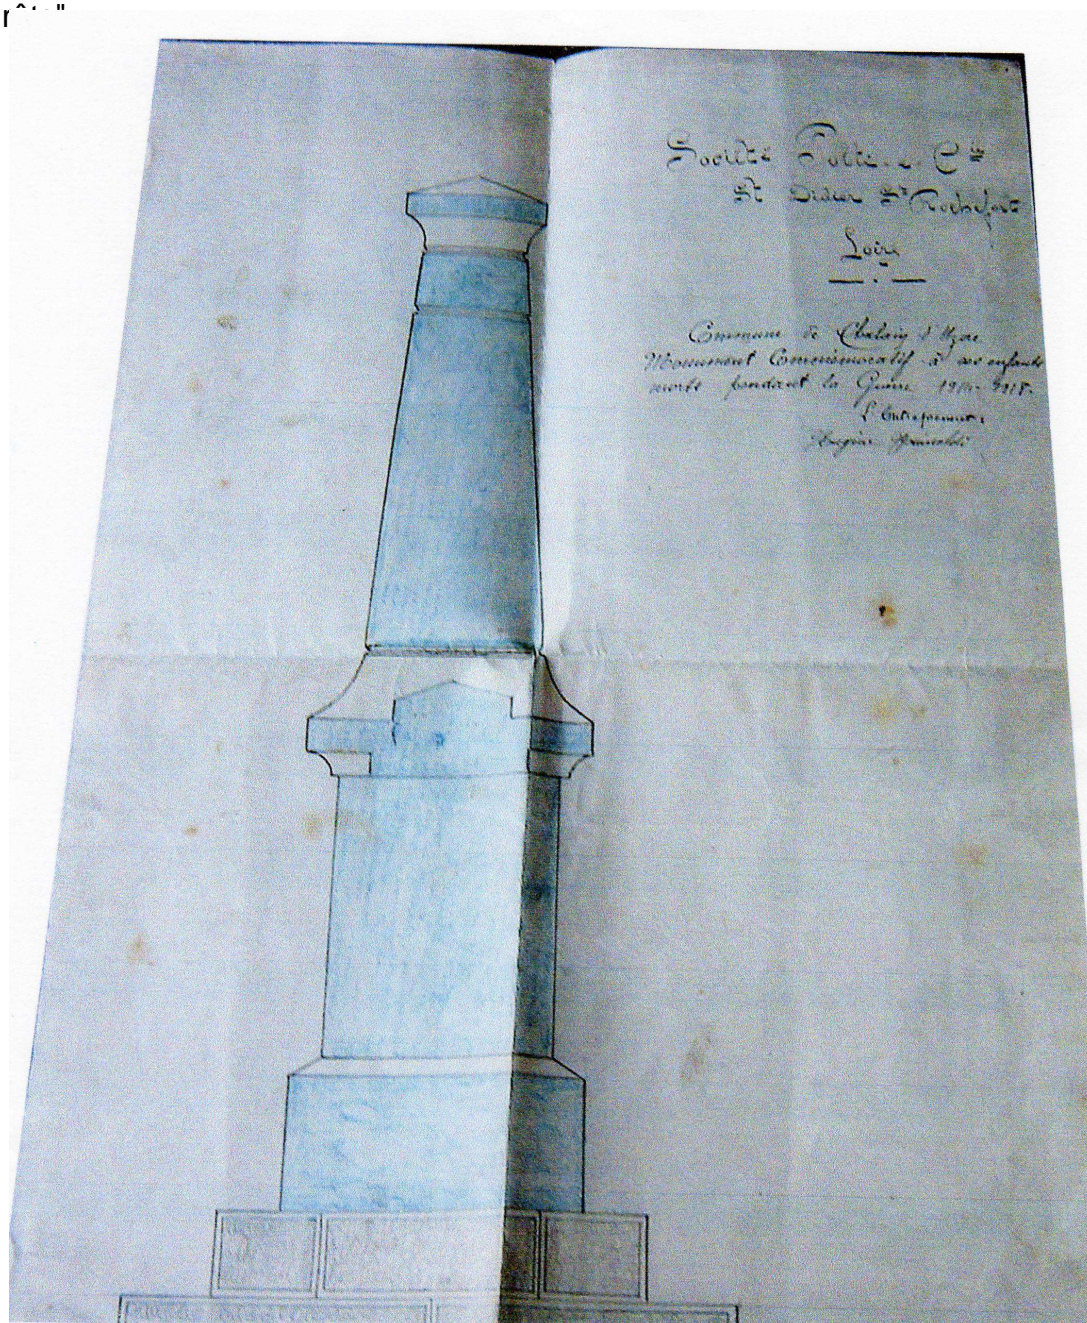 Société
St Didier St Rochefort
Loire
Commune de Chalain d'Uzore
Monument Commémoratif à ses enfants
morts pendant la Guerre 1914-1918.
L'Entrepreneur,